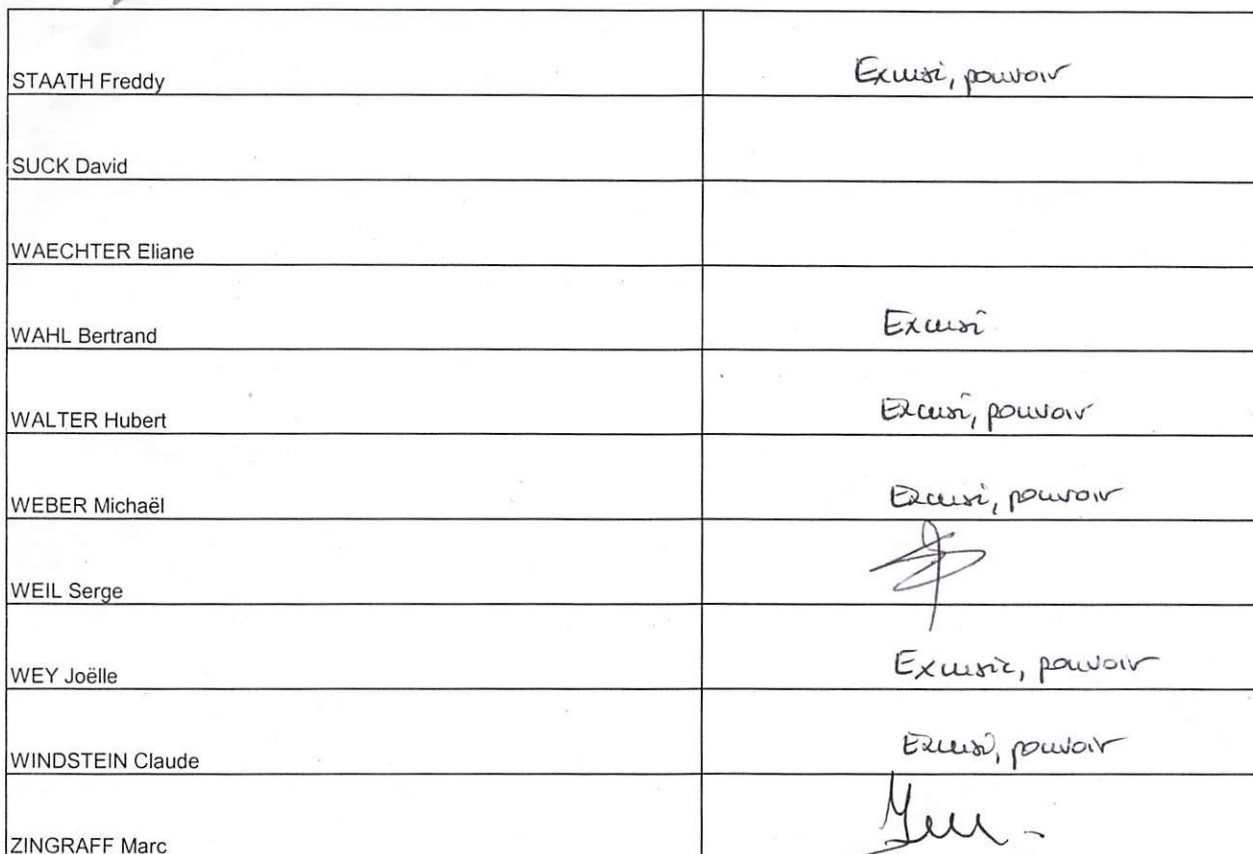 STAATH Freddy Excusé, pouvoir
SUCK David
WAECHTER Eliane
WAHL Bertrand Excusé
WALTER Hubert Excusé, pouvoir
WEBER Michaël Excusé, pouvoir
WEIL Serge
WEY Joëlle Excusée, pouvoir
WINDSTEIN Claude Excusé, pouvoir
ZINGRAFF Marc